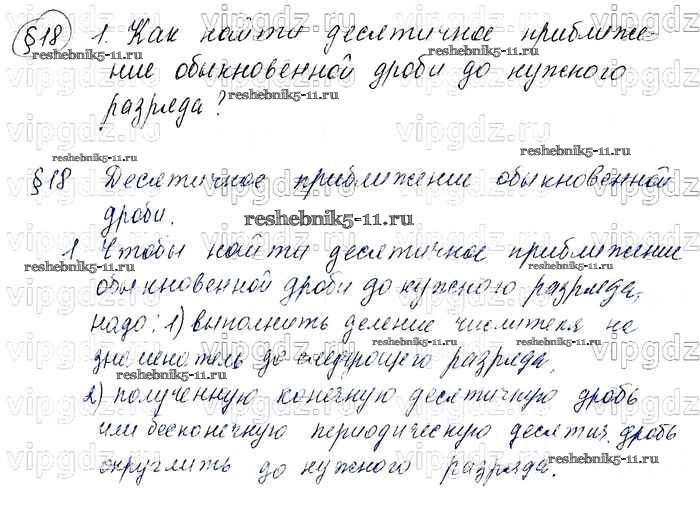 §18 1. Как найти десятичное приближе-
ние обыкновенной дроби до нужного
разряда?
§18 Десятичное приближении обыкновенной
дроби.
1 Чтобы найти десятичное приближении
обыкновенной дроби до нужного разряда,
надо: 1) выполнить деление числителя на
знаменатель до следующего разряда,
2) полученную конечную десятичную дробь
или бесконечную периодическую десятич. дробь
округлить до нужного разряда.